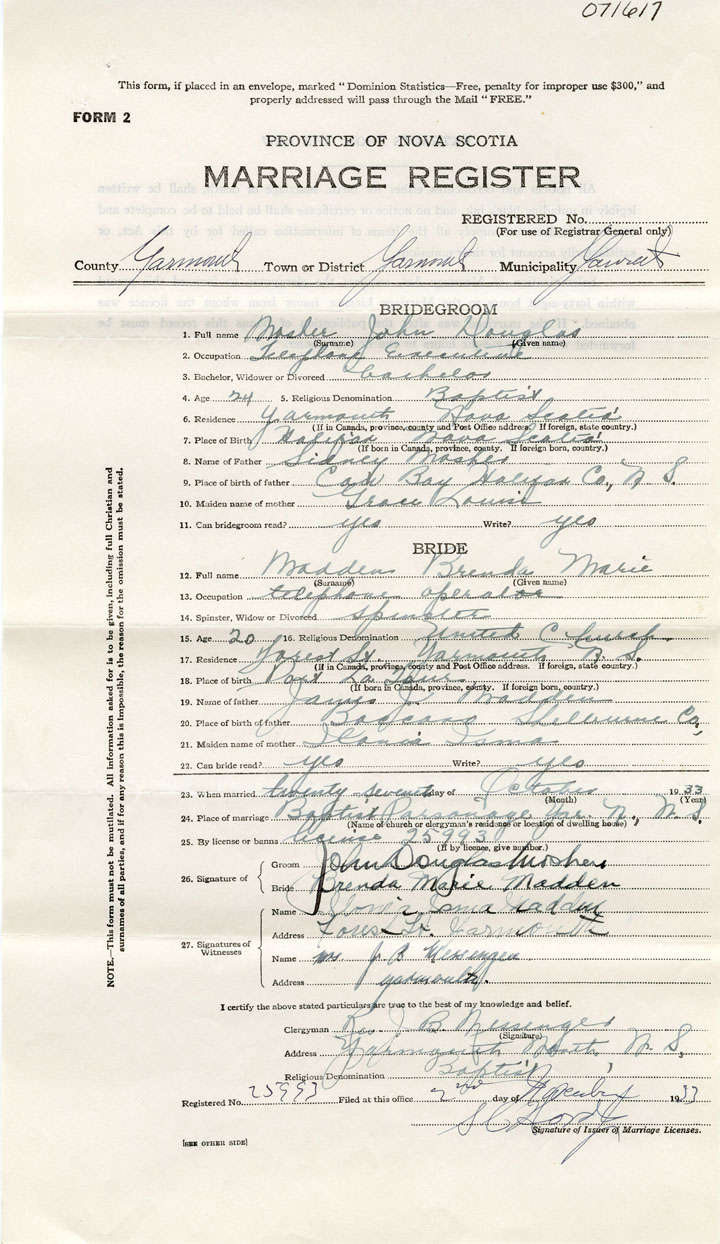 071617
This form, if placed in an envelope, marked "Dominion Statistics—Free, penalty for improper use $300," and
properly addressed will pass through the Mail "FREE."
FORM 2
PROVINCE OF NOVA SCOTIA
MARRIAGE REGISTER
REGISTERED No.
(For use of Registrar General only)
County Yarmouth Town or District Yarmouth Municipality
BRIDEGROOM
1. Full name Mosher John Douglas
(Surname) (Given name)
2. Occupation Telephone Executive
3. Bachelor, Widower or Divorced bachelor
4. Age 24 5. Religious Denomination Baptist
6. Residence Yarmouth Nova Scotia
(If in Canada, province, county and Post Office address. If foreign, state country.)
7. Place of Birth Halifax Nova Scotia
(If born in Canada, province, county. If foreign born, country.)
8. Name of Father Sidney Mosher
9. Place of birth of father Cow Bay Halifax Co., N. S.
10. Maiden name of mother Grace Louise
11. Can bridegroom read? yes Write? yes
BRIDE
12. Full name Madden Brenda Marie
(Surname) (Given name)
13. Occupation telephone operator
14. Spinster, Widow or Divorced spinster
15. Age 20 16. Religious Denomination United Church
17. Residence Forest St. Yarmouth N. S.
(If in Canada, province, county and Post Office address. If foreign, state country.)
18. Place of birth Port La Tour
(If born in Canada, province, county. If foreign born, country.)
19. Name of father James J. Madden
20. Place of birth of father Baccaro Shelburne Co.,
21. Maiden name of mother Isma
22. Can bride read? yes Write? yes
23. When married twenty seventh day of October 1933
(Month) (Year)
24. Place of marriage Baptist Parsonage Yar. N., N. S.
(Name of church or clergyman's residence or location of dwelling house)
25. By license or banns license 25993
(If by licence, give number.)
26. Signature of
Groom John Douglas Mosher
Bride Brenda Marie Madden
27. Signatures of Witnesses
Name Isma Madden
Address Forest St. Yarmouth
Name Mrs J B Messenger
Address Yarmouth.
I certify the above stated particulars are true to the best of my knowledge and belief.
Clergyman Rev. J. B. Messenger
(Signature)
Address Yarmouth North N. S.
Religious Denomination Baptist
Registered No. 25993 Filed at this office 2nd day of November 1933
Signature of Issuer of Marriage Licenses.
[SEE OTHER SIDE]
NOTE.—This form must not be mutilated. All information asked for is to be given, including full Christian and
surnames of all parties, and if for any reason this is impossible, the reason for the omission must be stated.